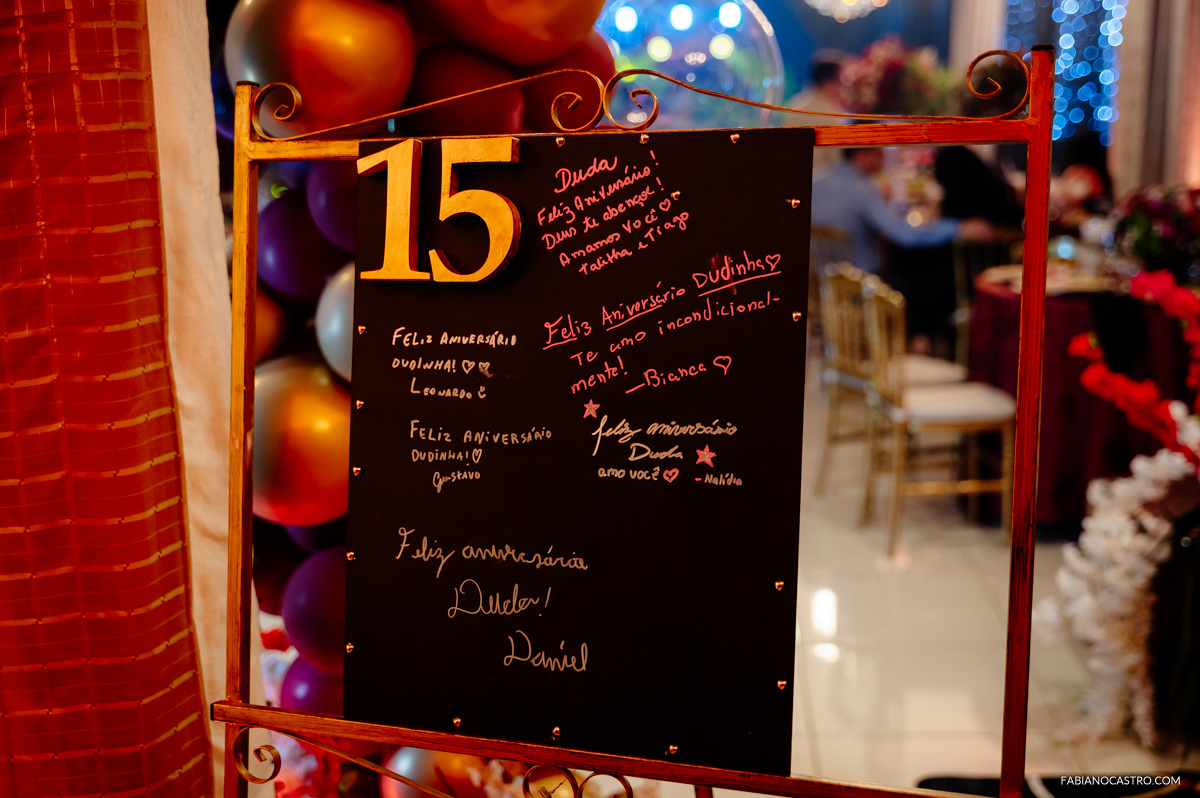 15
Duda
Feliz Aniversário!
Deus te abençoe!
Amamos Você ♡
Talitha e Tiago
Feliz Aniversário Dudinha♡
Te amo incondicional-
mente!
—Bianca ♡
FELIZ ANIVERSÁRIO
DUDINHA! ♡♡
LEONARDO
FELIZ ANIVERSÁRIO
DUDINHA! ♡
Gustavo
feliz aniversário
Duda
amo você ♡
- Nalídia
Feliz aniversário
Duda!
Daniel
FABIANOCASTRO.COM